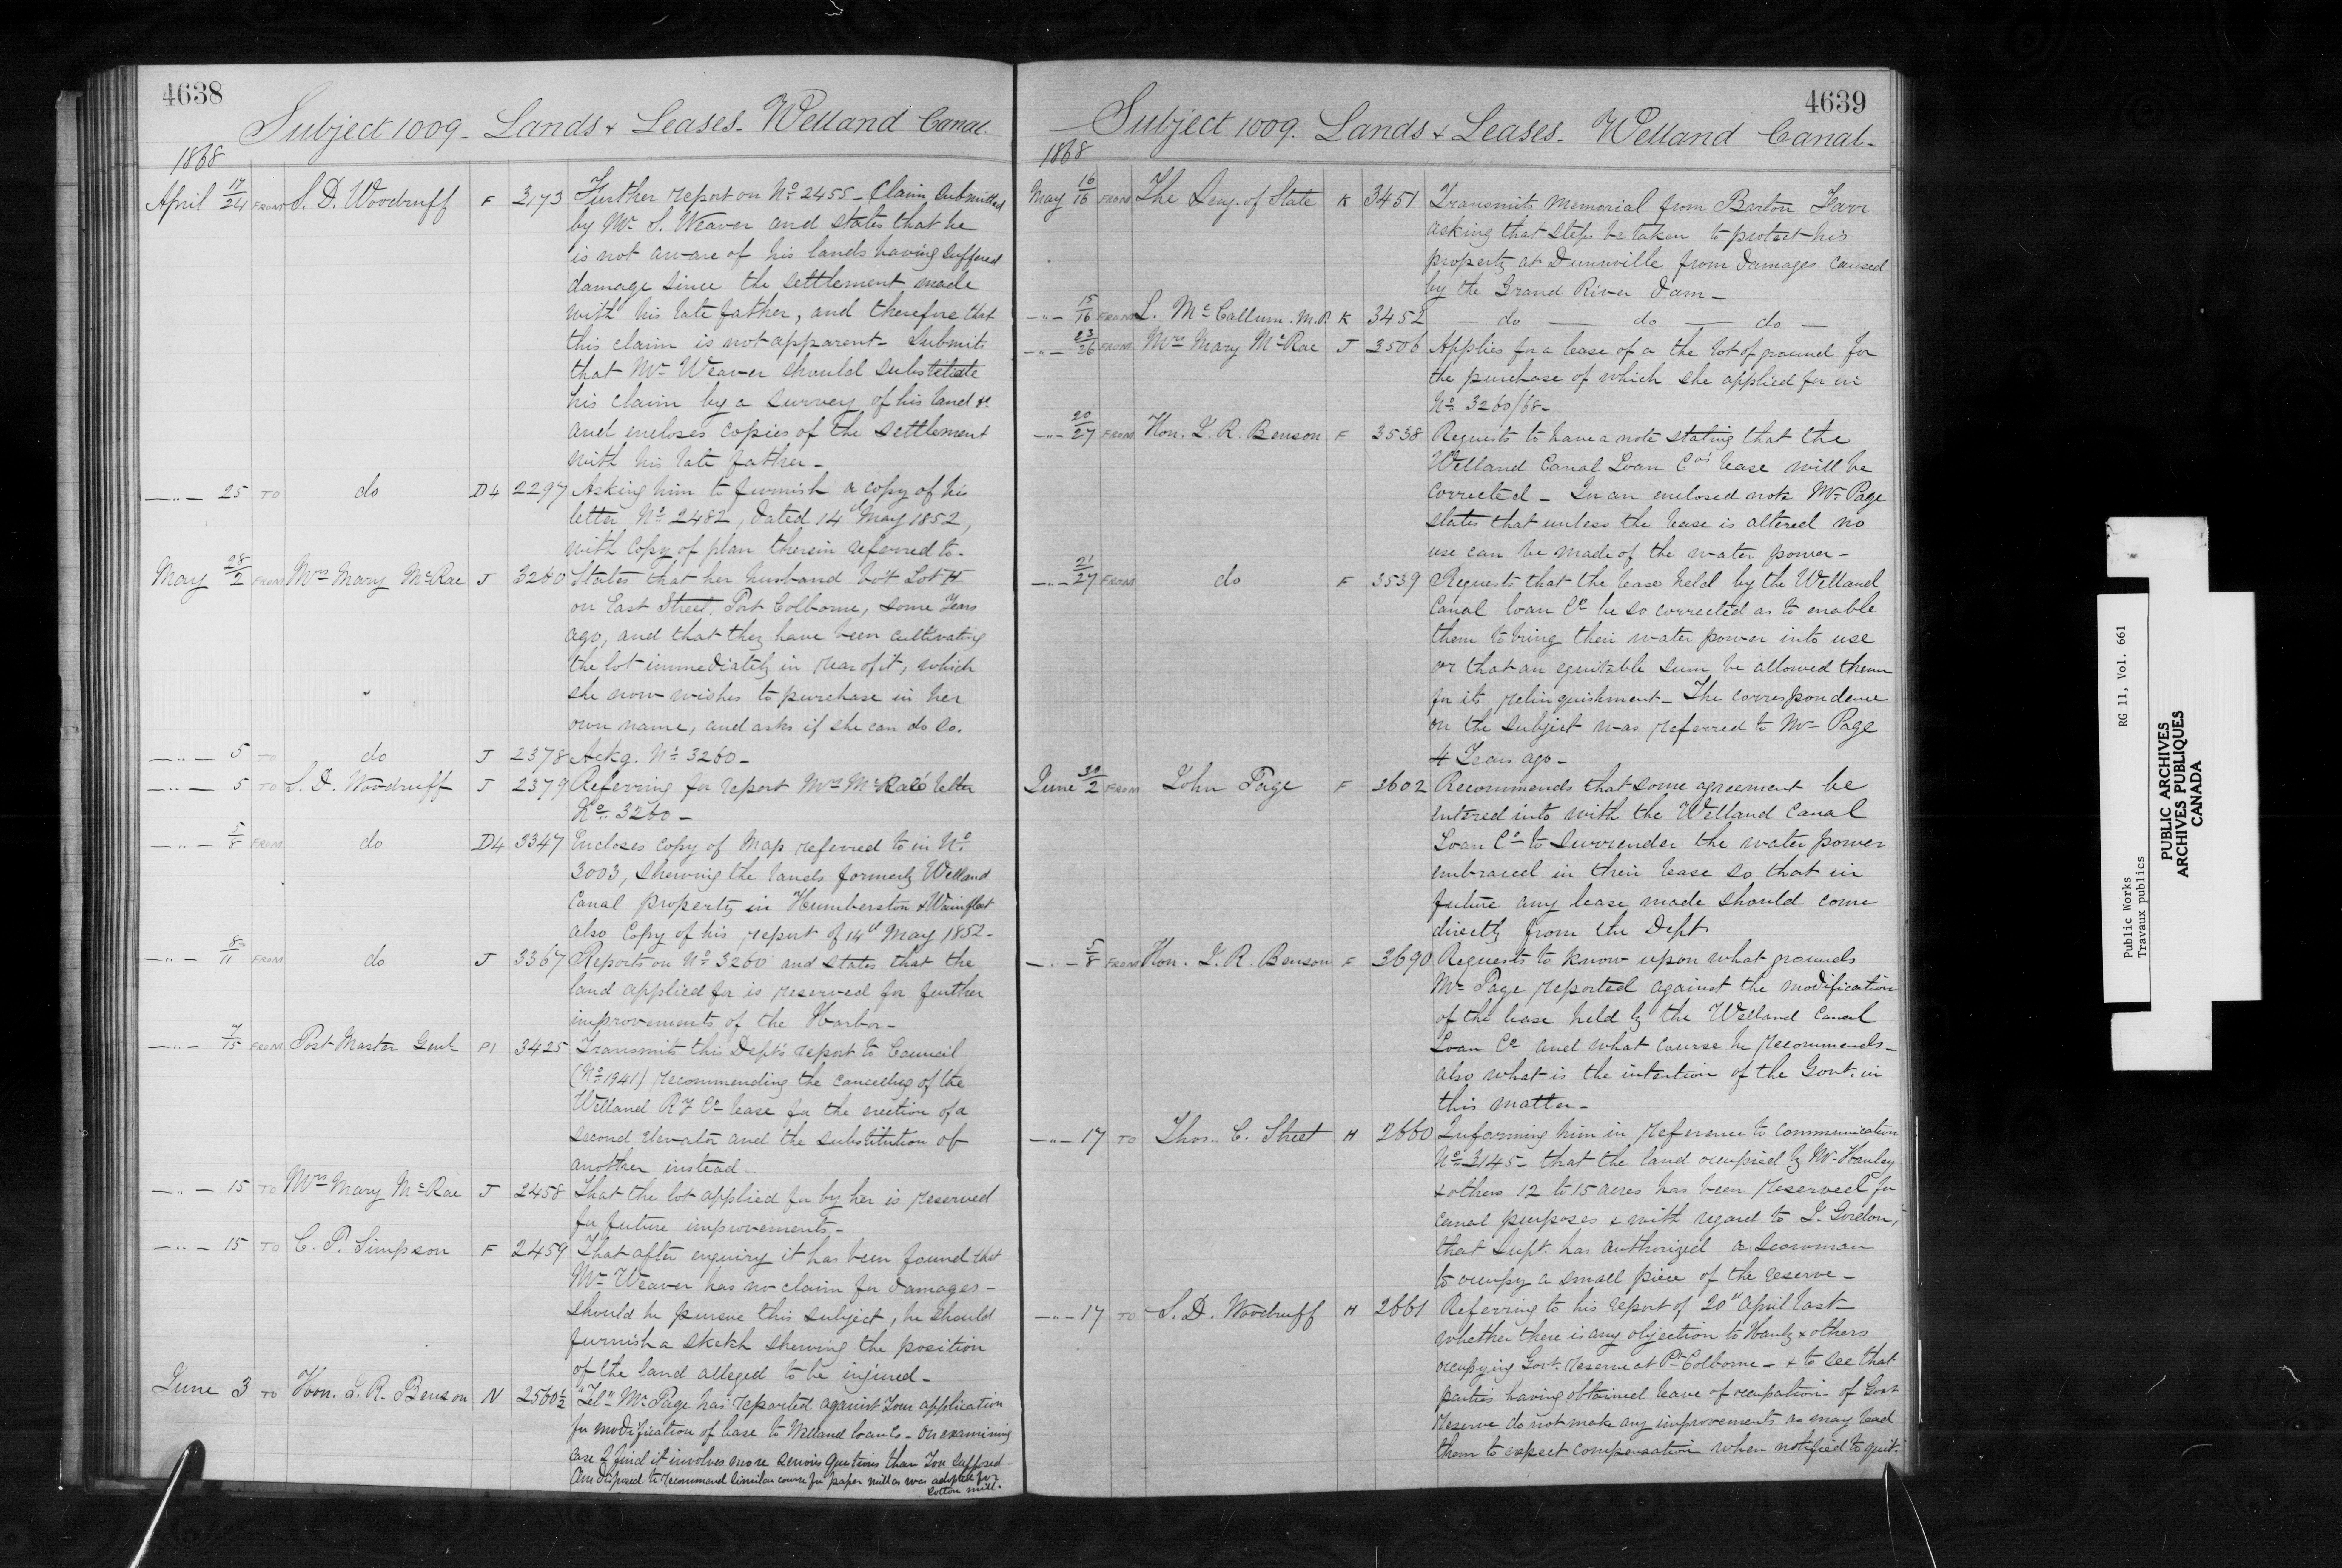 4638
Subject 1009 - Lands & Leases - Welland Canal.
1868
April 17/24 FROM S. D. Woodruff F 3173 Further report on No 2455 - Claim submitted
by Mr S. Weaver and states that he
is not aware of his lands having suffered
damage since the settlement made
with his late father, and therefore that
this claim is not apparent - Submits
that Mr Weaver should substitute
his claim by a survey of his land &c
and encloses copies of the settlement
with his late father -
-"- 25 TO do D4 2297 Asking him to furnish a copy of his
letter No 2482, dated 14th May 1852,
with copy of plan therein referred to -
May 28/2 FROM Mrs Mary McRae J 3260 States that her husband bo't Lot
on East Street, Port Colborne, some Years
ago, and that they have been cultivating
the lot immediately in rear of it, which
she now wishes to purchase in her
own name, and asks if she can do so.
-"- 5 TO do J 2378 Ackg. No 3260 -
-"- 5 TO S. D. Woodruff J 2379 Referring for report Mrs McRae's letter
No 3260 -
-"- 5/8 FROM do D4 3347 Encloses copy of Map referred to in No
3003, shewing the lands formerly Welland
Canal property in Humberston & Wainfleet
also Copy of his report of 14th May 1852 -
-"- 8/11 FROM do J 3367 Reports on No 3260 and states that the
land applied for is reserved for further
improvements of the Harbor -
-"- 7/15 FROM Post Master Genl P1 3425 Transmits this Dept's report to Council
(No 1941) recommending the cancelling of the
Welland Ry Co lease for the erection of a
second elevator and the substitution of
another instead -
-"- 15 TO Mrs Mary McRae J 2458 That the lot applied for by her is reserved
for future improvements -
-"- 15 TO C. P. Simpson F 2459 That after enquiry it has been found that
Mr Weaver has no claim for damages -
should he pursue this subject, he should
furnish a sketch shewing the position
of the land alleged to be injured -
June 3 TO Hon. J. R. Benson N 2560½ "Tel" Mr Page has reported against Your application
for modification of lease to Welland loan Co - On examining
case I find it involves more serious questions than You supposed -
Am disposed to recommend similar course for paper mill as was adopted for
cotton mill.
4639
Subject 1009. Lands & Leases - Welland Canal -
1868
May 16/16 FROM The Secy. of State K 3451 Transmits Memorial from Barton Farr
asking that steps be taken to protect his
property at Dunnville from damages caused
by the Grand River Dam -
-"- 15/16 FROM L. McCallum. M.P. K 3452 - do - do - do -
-"- 23/26 FROM Mrs Mary McRae J 3506 Applies for a lease of a the lot of ground for
the purchase of which she applied for in
No 3260/68 -
-"- 20/27 FROM Hon. J. R. Benson F 3538 Requests to have a note stating that the
Welland Canal Loan Co's lease will be
corrected - In an enclosed note Mr Page
states that unless the lease is altered no
use can be made of the water power -
-"- 21/27 FROM do F 3539 Requests that the lease held by the Welland
Canal loan Co be so corrected as to enable
them to bring their water power into use
or that an equitable sum be allowed them
for its relinquishment - The correspondence
on the subject was referred to Mr Page
4 Years ago -
June 30/2 FROM John Page F 3602 Recommends that some agreement be
entered into with the Welland Canal
Loan Co to surrender the water power
embraced in their lease so that in
future any lease made should come
directly from the Dept.
-"- 5/8 FROM Hon. J. R. Benson F 3690 Requests to know upon what grounds
Mr Page reported against the modification
of the lease held by the Welland Canal
Loan Co and what course he recommends -
also what is the intention of the Govt. in
this matter -
-"- 17 TO Thos. C. Street H 2660 Informing him in reference to communication
No 3145 - that the land occupied by Mr Hanley
& others 12 to 15 acres has been reserved for
canal purposes & with regard to J. Gordon,
that Supt. has authorized a Scowman
to occupy a small piece of the reserve -
-"- 17 TO S. D. Woodruff H 2661 Referring to his report of 20th April last -
whether there is any objection to Hanly & others
occupying Govt. reserve at Pt Colborne - & to see that
parties having obtained leave of occupation of Govt
reserve do not make any improvements as may lead
them to expect compensation when notified to quit.
Public Works RG 11, Vol. 661
Travaux publics
PUBLIC ARCHIVES
ARCHIVES PUBLIQUES
CANADA